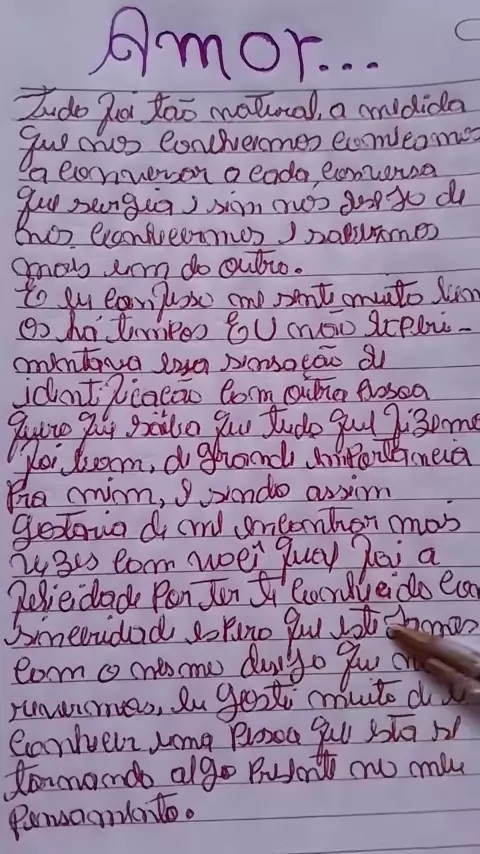 Amor...
Tudo foi tão natural, a medida
que nos conhecemos começamos
a conversar a cada conversa
que surgia, sim nos desejo de
nos conhecermos e sabermos
mais um do outro.
E eu confesso me senti muito bem
há tempos EU não experi-
mentava essa sensação de
identificação com outra Pessoa
quero que saiba que tudo que fizemos
foi bom, de grande importância
Pra mim, e sendo assim
gostaria de me encontrar mais
vezes com você foi a
felicidade por ter te conhecido com
sinceridade espero que
com o mesmo desejo
eu gostei muito de
conhecer uma Pessoa que esta se
tornando algo Presente no meu
Pensamento.